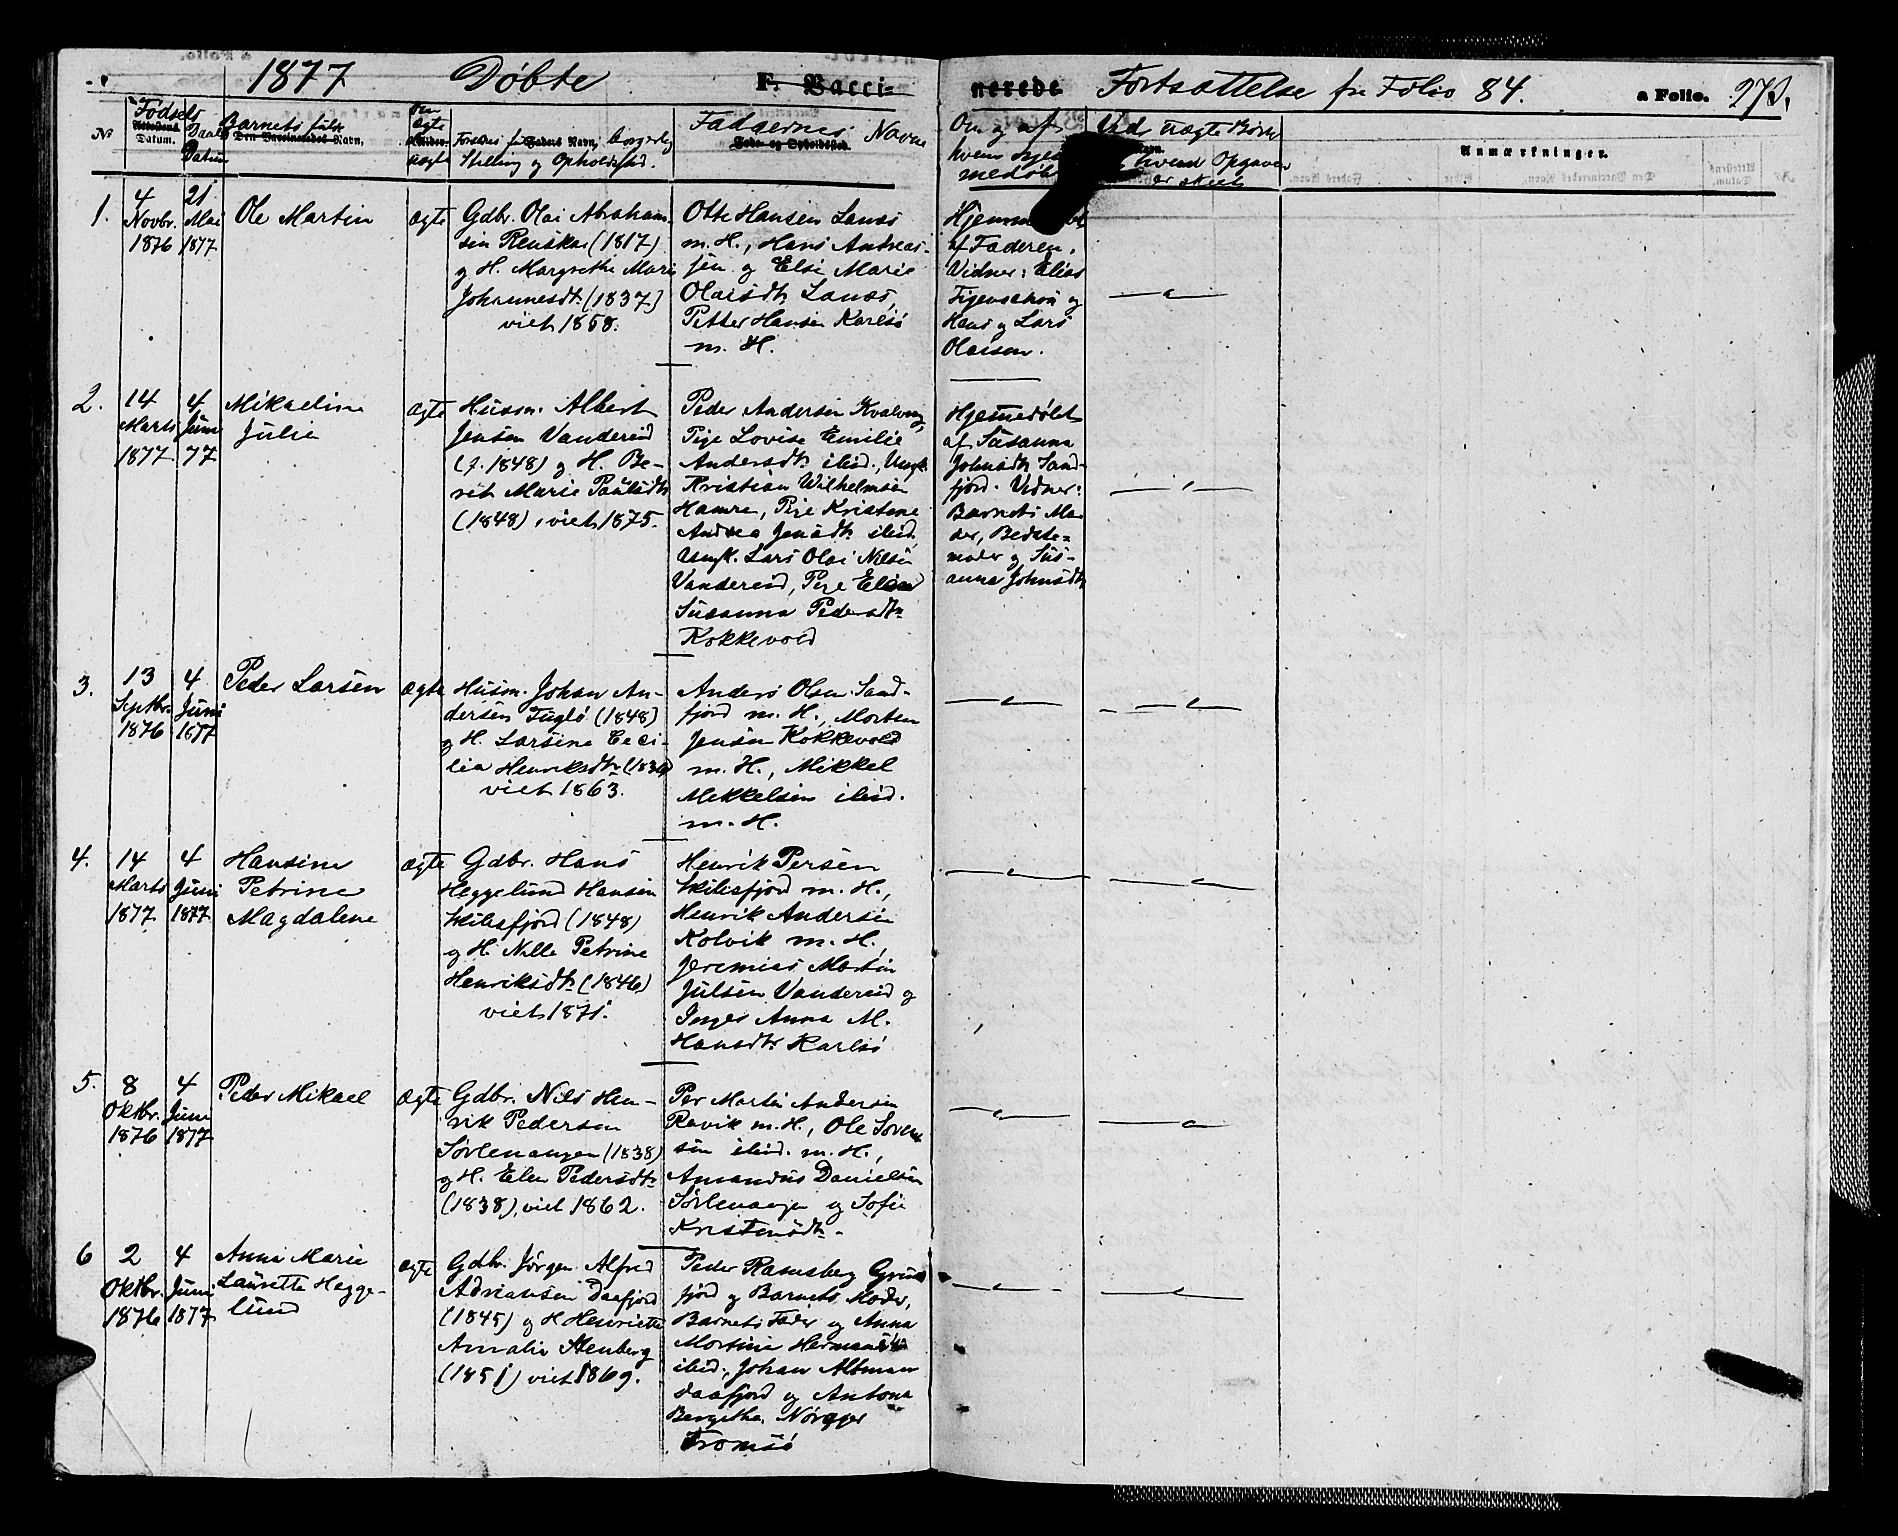 1877 Døbte F. Vacci-
nerede Fortsættelse fra Folio 84. a Folio. 273.
No
Fødsels Datum. Daabs Datum
Barnets fulde Navn.
Forældres fulde Navn, borgerlig
Stilling og Opholdssted.
Faddernes Navne
Om og af
hvem hjem
medøbt
Ved uægte Børn
hvem Opgaven
er skeet
Anmærkninger.
1.
4
Novbr.
1876
21
Mai
1877
Ole Martin
ægte
Gdbr. Olai Abraham-
sen Renskar (1817)
og H. Margrethe Marie
Johannesdtr (1837)
viet 1858.
Otte Hansen Lanæs
m. H., Hans Andreas-
sen og Else Marie
Olaisdtr Lanæs,
Petter Hansen Karlsø
m. H.
af Faderen.
Vidner: Elias
Figenschou og
Hans og Lars
Olaisen.
2.
14
Marts
1877
4
Juni
77
Mikaeline
Julie
ægte
Husm. Albert
Jensen Vandereid
(f. 1848) og H. Be-
rit Marie Paulsdtr
(1848), viet 1875.
Peder Andersen Kvalvaag,
Pige Lovise Emilie
Andersdtr ibid., Ungk.
Kristian Wilhelmsen
Hamre, Pige Kristine
Andrea Jensdtr ibid.
Ungk. Lars Olai Nilsen
Vandereid, Pige Elen
Susanna Pedersdtr
Kokkevold
Hjemmedøbt
af Susanna
Johnsdtr Sand-
fjord. Vidner:
Barnets Mo-
der, Bedste-
moder og Sus-
anna Johnsdtr
3.
13
Septbr.
1876
4
Juni
1877
Peder Larsen
ægte
Husm. Johan An-
dersen Fuglø (1848)
og H. Larsine Ceci-
lia Henriksdtr
viet 1863.
Anders Olsen Sand-
fjord m. H., Morten
Jensen Kokkevold
m. H., Mikkel
Mikkelsen ibid.
m. H.
4.
14
Marts
1877
4
Juni
1877
Hansine
Petrine
Magdalene
ægte
Gdbr. Hans
Heggelund Hansen
Skibsfjord (1848)
og H. Nille Petrine
Henriksdtr (1846)
viet 1871.
Henrik Persen
Skibsfjord m. H.,
Henrik Andersen
Kolvik m. H.,
Jeremias Martin
Julsen Vandereid og
Inger Anna M.
Hansdtr Karlsø
5.
8
Oktbr.
1876
4
Juni
1877
Peder Mikael
ægte
Gdbr. Nils Hen-
rik Pedersen
Sørlenangen (1838)
og H. Elen Pedersdtr
(1838), viet 1862.
Per Martin Andersen
Ravik m. H., Ole Soren-
sen ibid. m. H.,
Amandus Danielsen
Sørlenangen og Sofie
Kristensdtr
6
2
Oktbr.
1876
4
Juni
1877
Anna Marie
Lauretta Hegge-
lund
ægte
Gdbr. Jørgen Alfred
Adriansen Daafjord
(1845) og H. Henriette
Amalie Stenberg
(1851) viet 1869.
Peder Ramsberg Grøns
fjord og Barnets Moder,
Barnets Fader og Anna
Martine Hermansdtr
ibid., Johan Altman
Daafjord og Antona
Bergitha Nørager
Tromsø